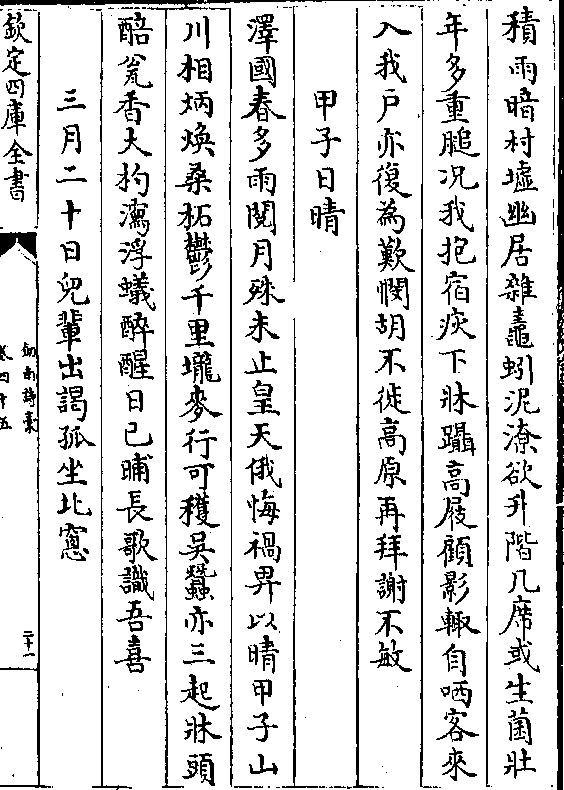 積雨暗村墟幽居雜鼃蚓泥潦欲升階几席或生菌壯
年多重膇况我抱宿疾下牀躡高屐顧影輙自哂客來
入我戸亦復為歎憫胡不徙高原再拜謝不敏
甲子日晴
澤國春多雨閱月殊未止皇天俄悔禍畀以晴甲子山
川相炳煥桑柘鬱千里壠麥行可穫吳蠶亦三起牀頭
醅瓮香大杓瀉浮蟻醉醒日已晡長歌識吾喜
三月二十日兒輩出謁孤坐北窻
欽定四庫全書
劒南詩槀
卷四十五
二十一